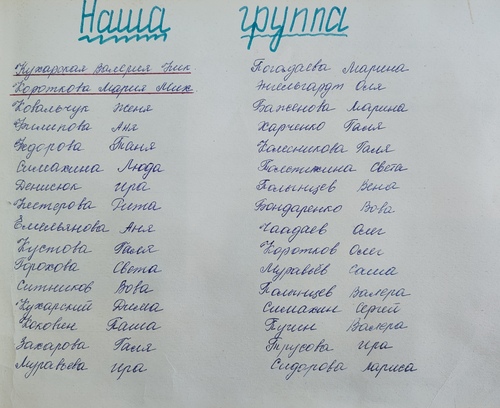 Наша группа
Кухарская Валерия Ник
Короткова Мария Мих.
Ковальчук Женя
Филипова Аня
Федорова Таня
Симахина Люда
Денисюк Ира
Нестерова Рита
Емельянова Аня
Кустова Галя
Горохова Света
Ситников Вова
Кухарский Дима
Коковин Паша
Захарова Галя
Муравьева Ира
Погадаева Марина
Оля
Баженова Марина
Харченко Галя
Колесникова Галя
Света
Веня
Бондаренко Вова
Чаадаев Олег
Коротков Олег
Муравьёв Саша
Валера
Симахин Сергей
Валера
Трусова Ира
Сидорова Лариса